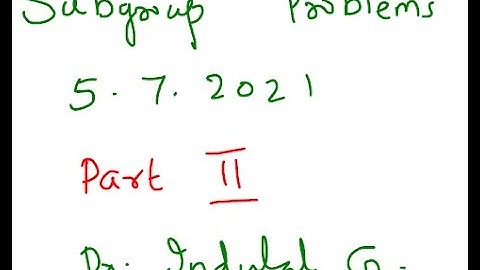 Subgroup Problems
5.7.2021
Part II
Dr. Indulal G.